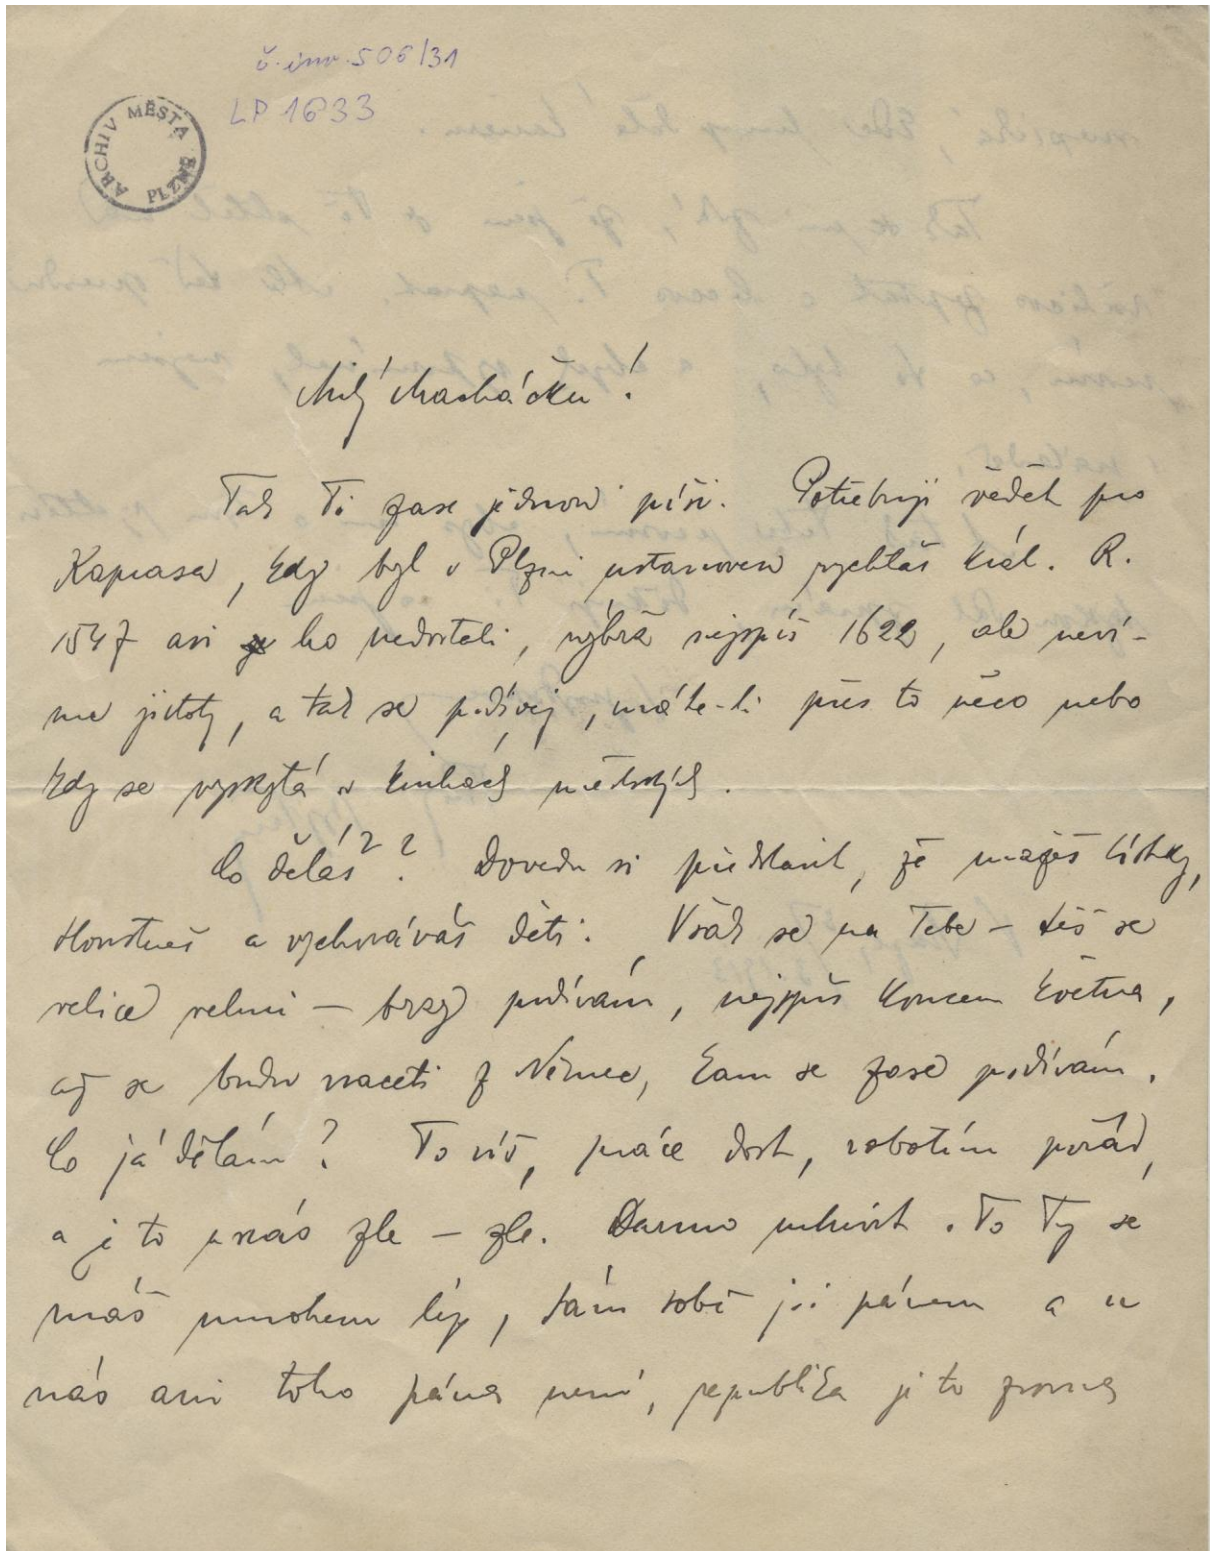 č. inv. 506/31
LP 1633
ARCHIV MĚSTA PLZNĚ
Milý Macháčku!
Tak Ti zase jednou píši. Potřebuji vědět pro
Kaprasa, kdy byl v Plzni ustanoven rychtář král. R.
1547 asi ho nedostali, nýbrž nejspíš 1622, ale neví-
me jistoty, a tak se podívej, máte-li přes to něco nebo
kdy se vyskytá v knihách městských.
Co děláš?? Dovedu si představit, že lístky,
a vychováváš děti. Však se na Tebe – těš se
velice velmi – brzy podívám, nejspíš koncem května,
až se budu vraceti z Němec, kam se zase podívám.
Co já dělám? To víš, práce dost, robotím pořád,
a je to u nás zle – zle. Darmo mluvit. To Ty se
máš mnohem líp, sám sobě jsi pánem a u
nás ani toho pána není, republika je to zrovna